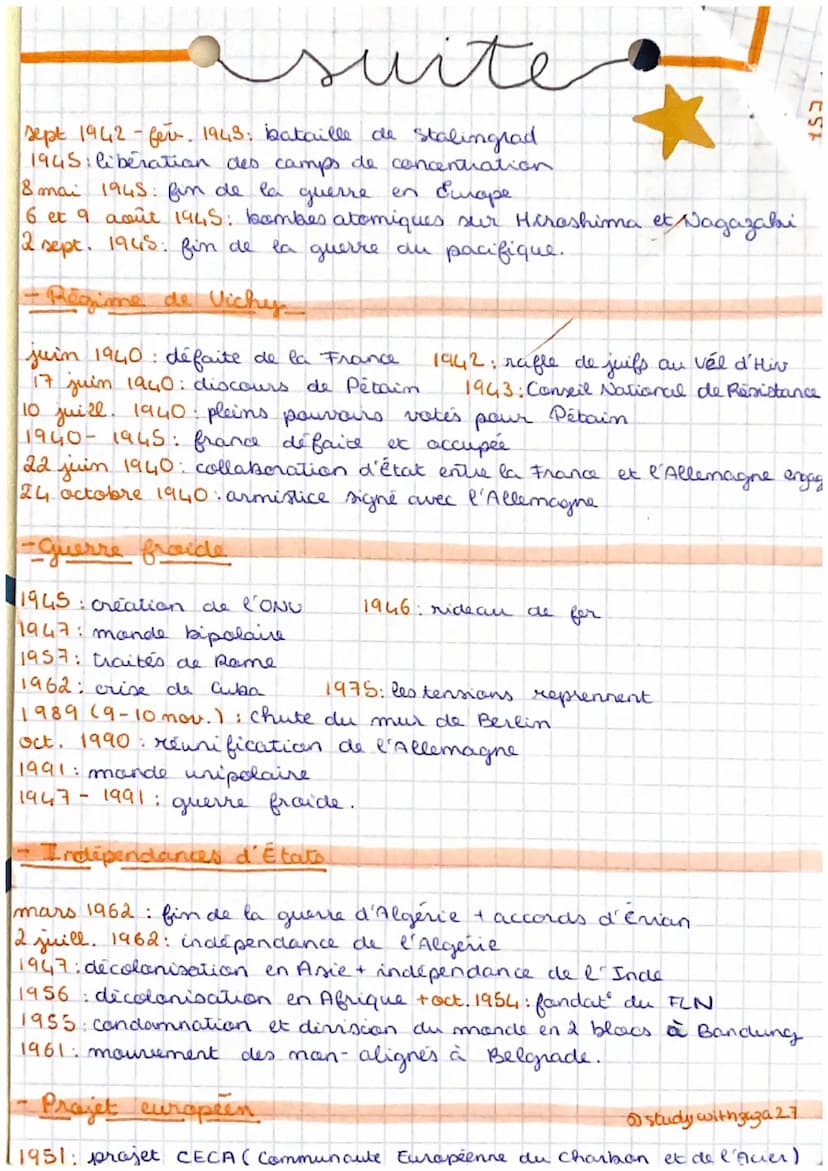 suite
sept 1942 - fév. 1943 : bataille de Stalingrad
1945 : libération des camps de concentration
8 mai 1945 : fin de la guerre en Europe
6 et 9 août 1945 : bombes atomiques sur Hiroshima et Nagazaki
2 sept. 1945 : fin de la guerre du pacifique.
- Régime de Vichy
juin 1940 : défaite de la France 1942 : rafle de juifs au Vél d'Hiv
17 juin 1940 : discours de Pétain 1943 : Conseil National de Résistance
10 juill. 1940 : pleins pouvoirs votés pour Pétain
1940 - 1945 : france défaite et occupée
22 juin 1940 : collaboration d'État entre la France et l'Allemagne engag
24 octobre 1940 : armistice signé avec l'Allemagne
- Guerre froide
1945 : création de l'ONU 1946 : rideau de fer
1947 : monde bipolaire
1957 : traités de Rome
1962 : crise de Cuba 1975 : les tensions reprennent
1989 (9-10 nov.) : chute du mur de Berlin
oct. 1990 : réunification de l'Allemagne
1991 : monde unipolaire
1947 - 1991 : guerre froide.
- Indépendances d'États
mars 1962 : fin de la guerre d'Algérie + accords d'Évian
2 juill. 1962 : indépendance de l'Algérie
1947 : décolonisation en Asie + indépendance de l'Inde
1956 : décolonisation en Afrique + oct. 1954 : fondat° du FLN
1955 : condamnation et division du monde en 2 blocs à Bandung
1961 : mouvement des non-alignés à Belgrade.
- Projet européen
@studywithzuza27
1951 : projet CECA (Communauté Européenne du Charbon et de l'Acier)